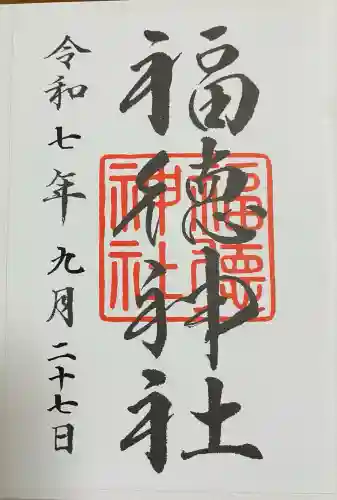 福徳神社
福徳神社
令和七年九月二十七日